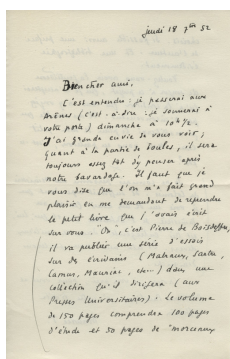 jeudi 18 7bre 52
Bien cher ami,
C'est entendu : je passerai aux
(c'est-à-dire : je sonnerai à
votre porte) dimanche à 10h½.
J'ai grande envie de vous voir ;
quant à la partie de boules, il sera
toujours assez tôt d'y penser après
notre bavardage. Il faut que je
vous dise que l'on m'a fait grand
plaisir en me demandant de reprendre
le petit livre que j'avais écrit
sur vous. Or, c'est Pierre de Boisdeffre,
il va publier une série d'essais
sur des écrivains (Malraux, Sartre,
Camus, Mauriac, etc...) dans une
collection qu'il dirigera (aux
Presses Universitaires). Le volume
de 150 pages comprendra 100 pages
d'étude et 50 pages de "morceaux